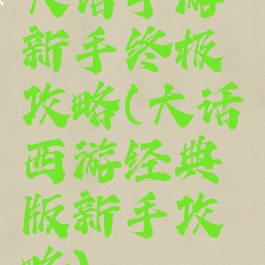 大话手游
新手终极
攻略(大话
西游经典
版新手攻
略)